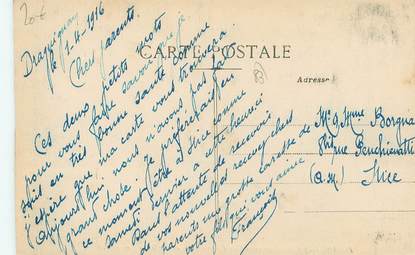 20€
CARTE POSTALE
Adresse
Draguignan
le 1-4-1916
Chers parents
Ces deux petits mots
pour vous faire savoir que je
suis en très bonne santé comme
j'espère que ma carte vous trouvera
Aujourd'hui nous n'avons pas fait
grand chose je préférerais en
ce moment être à Nice comme
samedi dernier à cette heure ci
Dans l'attente de recevoir
de vos nouvelles recevez chers
parents une grosse caresse de
votre fils qui vous aime
François
Mr & Mme Borgna
Rue
(a-m) Nice